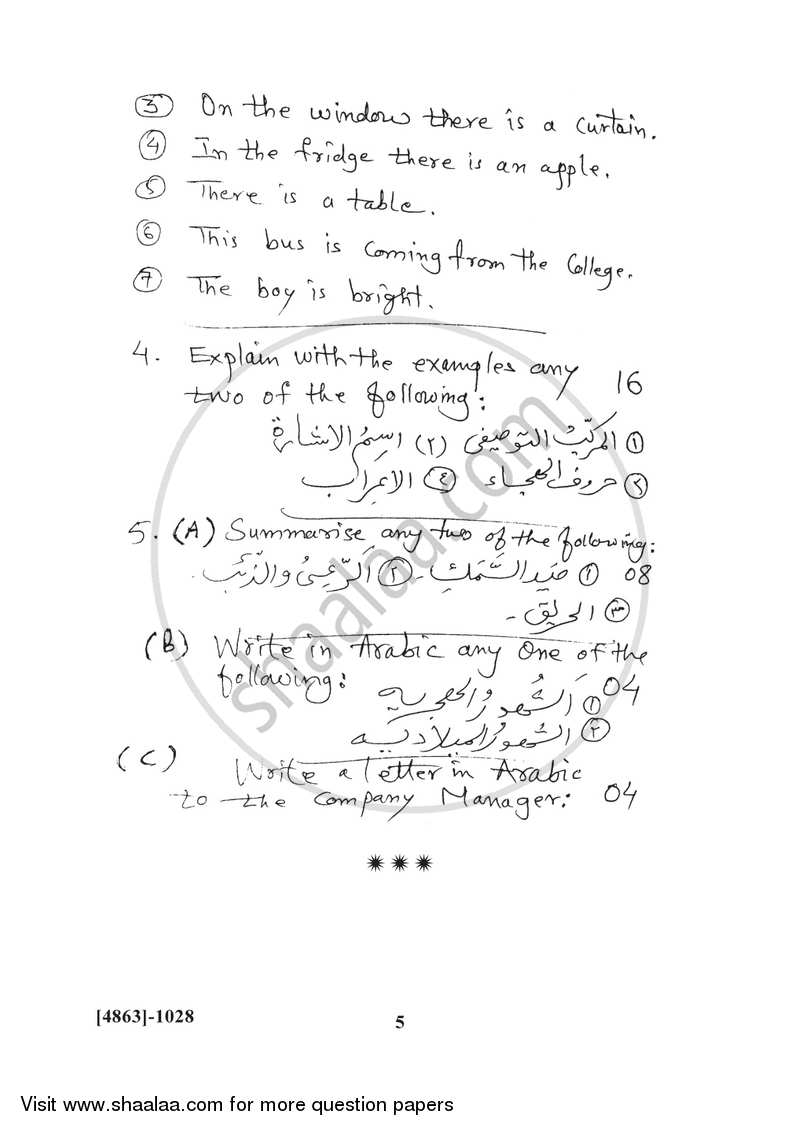 ③ On the window there is a curtain.
④ In the fridge there is an apple.
⑤ There is a table.
⑥ This bus is coming from the College.
⑦ The boy is bright.
4. Explain with the examples any
two of the following: 16
① المركّبُ التوصيفى (٢) اسمُ الاشارة
③ حروف الهجاء ④ الاعراب
5. (A) Summarise any two of the following:
① صَيد السَّمَكِ - ② اَلرَّاعِىُ والذِّئب . 08
③ الحريق -
(B) Write in Arabic any One of the
following: 04
① اَلشُّهورُ الهجريه
② الشهورُ الميلاديه
(C) Write a letter in Arabic
to the Company Manager: 04
✷ ✷ ✷
[4863]-1028
5
shaalaa.com
Visit www.shaalaa.com for more question papers